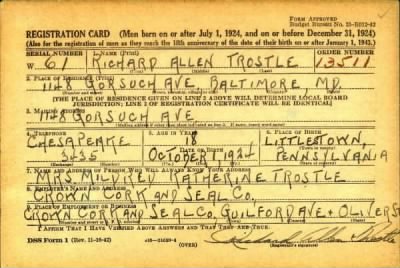 Form Approved
Budget Bureau No. 33-R012-42
REGISTRATION CARD—(Men born on or after July 1, 1924, and on or before December 31, 1924)
(Also for the registration of men as they reach the 18th anniversary of the date of their birth on or after January 1, 1943.)
SERIAL NUMBER 1. NAME (Print) ORDER NUMBER
W 61 RICHARD ALLEN TROSTLE 13511
(First) (Middle) (Last)
2. PLACE OF RESIDENCE (Print)
1128 GORSUCH AVE BALTIMORE MD.
[THE PLACE OF RESIDENCE GIVEN ON LINE 2 ABOVE WILL DETERMINE LOCAL BOARD
JURISDICTION; LINE 2 OF REGISTRATION CERTIFICATE WILL BE IDENTICAL]
3. MAILING ADDRESS
1128 GORSUCH AVE
4. TELEPHONE 5. AGE IN YEARS 6. PLACE OF BIRTH
CHESAPEAKE 18 LITTLESTOWN,
DATE OF BIRTH
3435 OCTOBER 1, 1924 PENNSYLVANIA
7. NAME AND ADDRESS OF PERSON WHO WILL ALWAYS KNOW YOUR ADDRESS
MRS MILDRED KATHERINE TROSTLE
8. EMPLOYER'S NAME AND ADDRESS
CROWN CORK AND SEAL CO,
9. PLACE OF EMPLOYMENT OR BUSINESS
CROWN CORK AND SEAL CO, GUILFORD AVE + OLIVER ST
I AFFIRM THAT I HAVE VERIFIED ABOVE ANSWERS AND THAT THEY ARE TRUE.
DSS Form 1 (Rev. 11-16-42) (OVER) Richard Allen Trostle